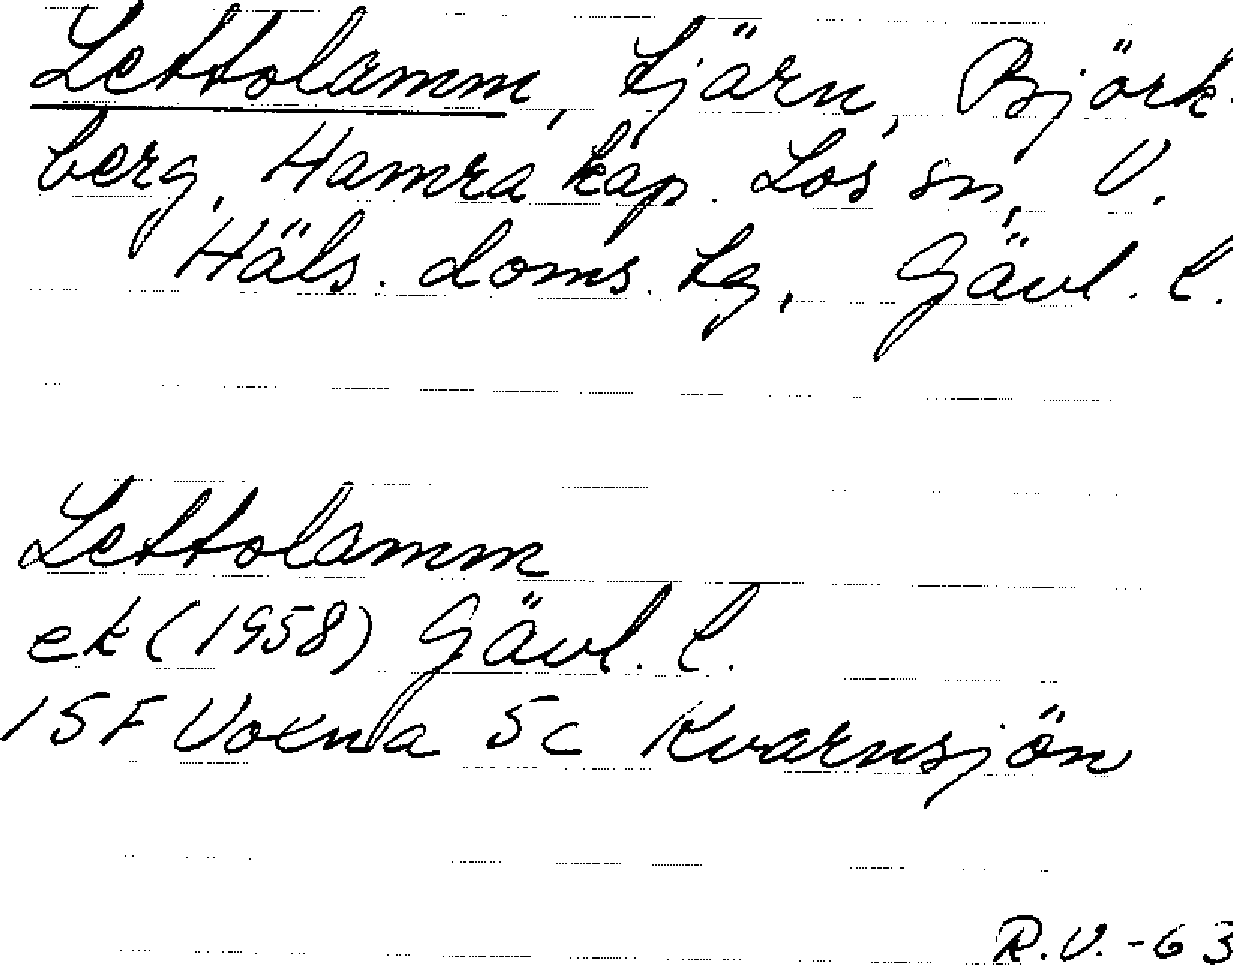 Lettolamm, tjärn, Björk-
berg, Hamra kap. Los sn, V.
Häls. doms. tg, Gävl. l.
Lettolamm
ek (1958) Gävl. l.
15F Voxna 5c Kvarnsjön
R.V.-63